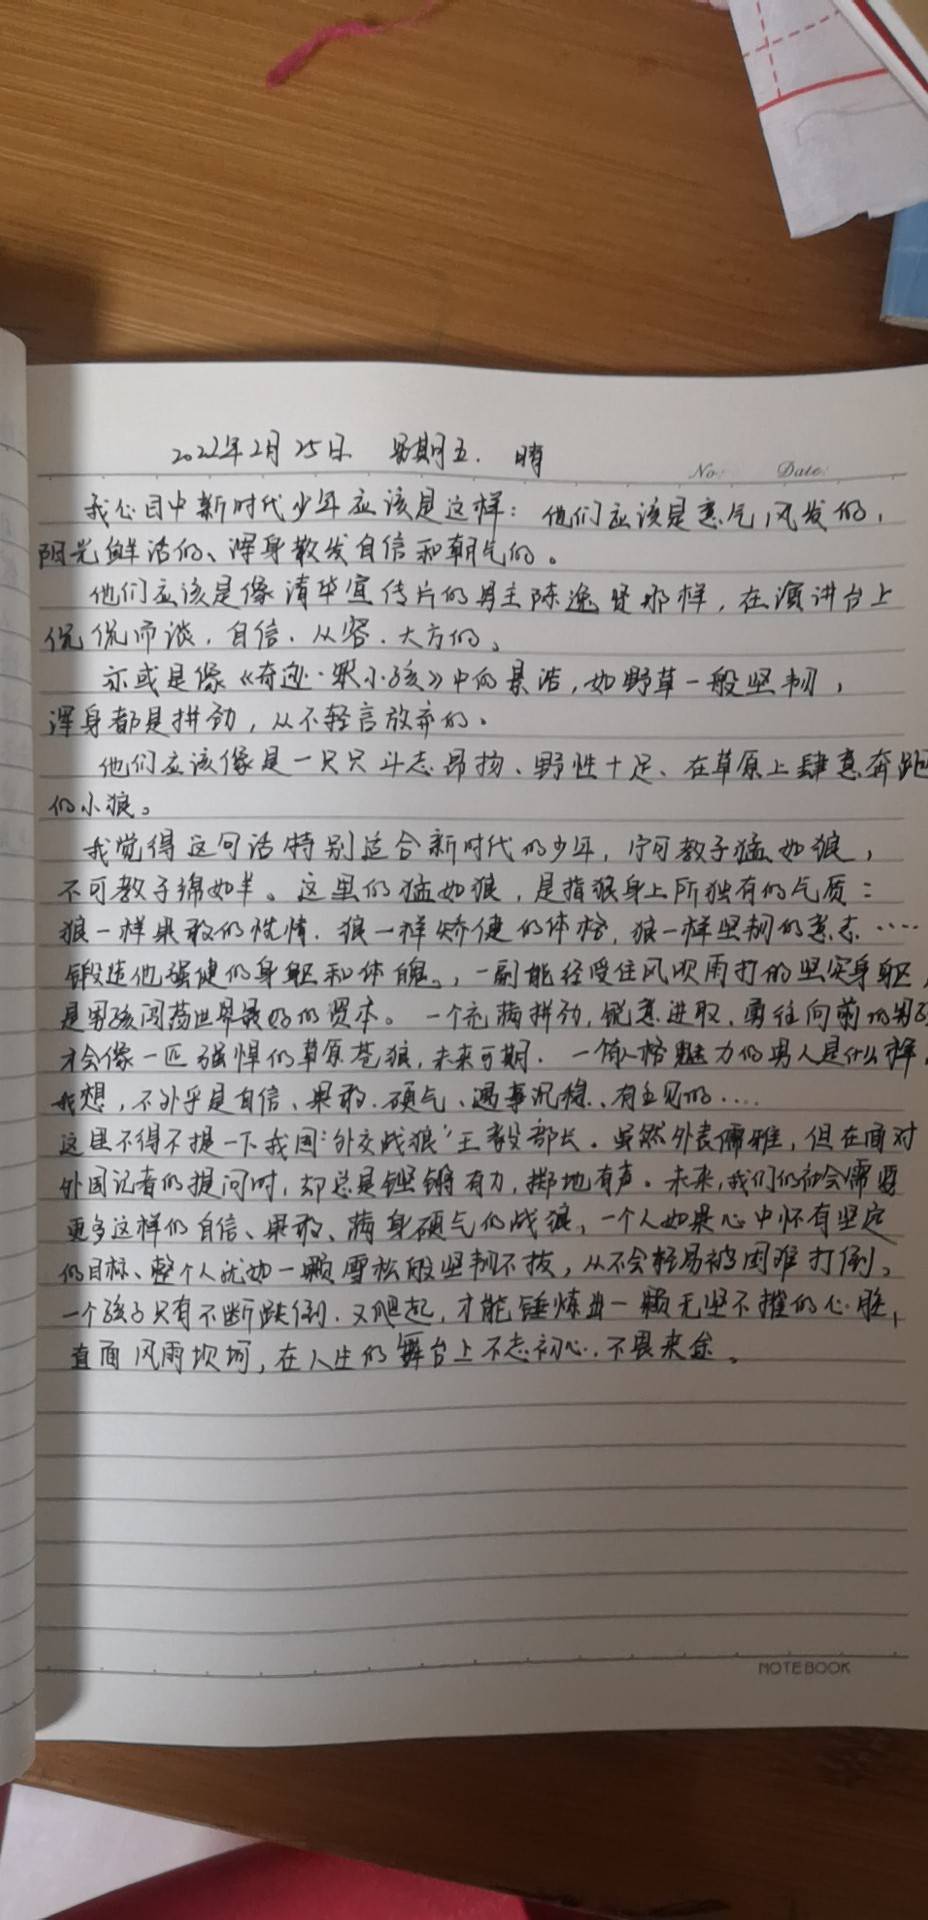 2022年2月25日 星期五. 晴
No: Date:
我心目中新时代少年应该是这样：他们应该是意气风发的，
阳光鲜活的、浑身散发自信和朝气的。
他们应该是像清华宣传片的男主陈逸贤那样，在演讲台上
侃侃而谈．自信．从容．大方的。
亦或是像《奇迹·笨小孩》中的景浩，如野草一般坚韧，
浑身都是拼劲，从不轻言放弃的。
他们应该像是一只只斗志昂扬、野性十足、在草原上肆意奔跑
的小狼。
我觉得这句话特别适合新时代的少年，宁可教子猛如狼，
不可教子绵如羊。这里的猛如狼，是指狼身上所独有的气质：
狼一样果敢的性情．狼一样矫健的体格，狼一样坚韧的意志……
锻造他强健的身躯和体魄。，一副能经受住风吹雨打的坚实身躯，
是男孩闯荡世界最好的资本。一个充满拼劲，锐意进取，勇往向前的男孩
才会像一匹强悍的草原苍狼，未来可期．一个人格魅力的男人是什么样，
我想，不外乎是自信、果敢．硬气、遇事沉稳、有主见的……
这里不得不提一下我国“外交战狼”王毅部长。虽然外表儒雅，但在面对
外国记者的提问时，却总是铿锵有力，掷地有声。未来，我们的社会需要
更多这样的自信、果敢、满身硬气的战狼，一个人如果心中怀有坚定
的目标、整个人就如一颗雪松般坚韧不拔，从不会轻易被困难打倒。
一个孩子只有不断跌倒．又爬起，才能锤炼出一颗无坚不摧的心脏，
直面风雨坎坷，在人生的舞台上不忘初心．不畏来途。
NOTEBOOK